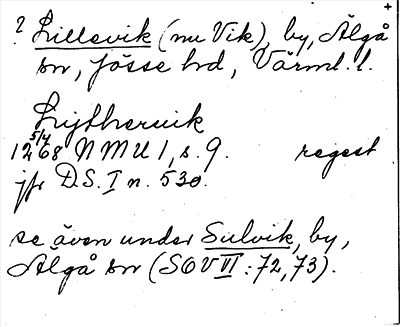 +
? Lillevik (nu Vik), by, Älgå
sn, Jösse hd, Värml. l.
Lytherwik
5/4
1268 NMU 1, s. 9. regest
jfr D.S. I n. 530.
se även under Sulvik, by,
Älgå sn (SOV VII: 72, 73).